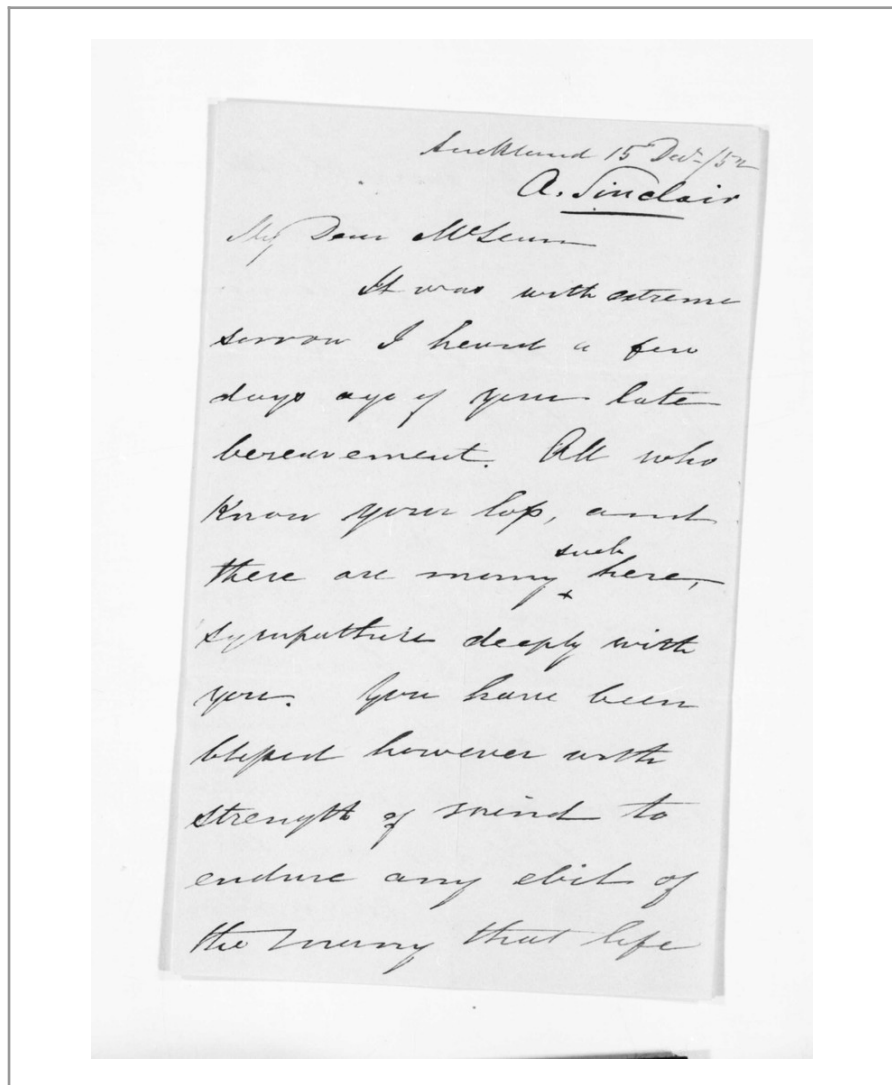 Auckland 15 Decr /52
A. Sinclair
My Dear McLean
It was with extreme
sorrow I heard a few
days ago of your late
bereavement. All who
know your loss, and
there are many such here,
sympathise deeply with
you. You have been
blessed however with
strength of mind to
endure any of
the many that life